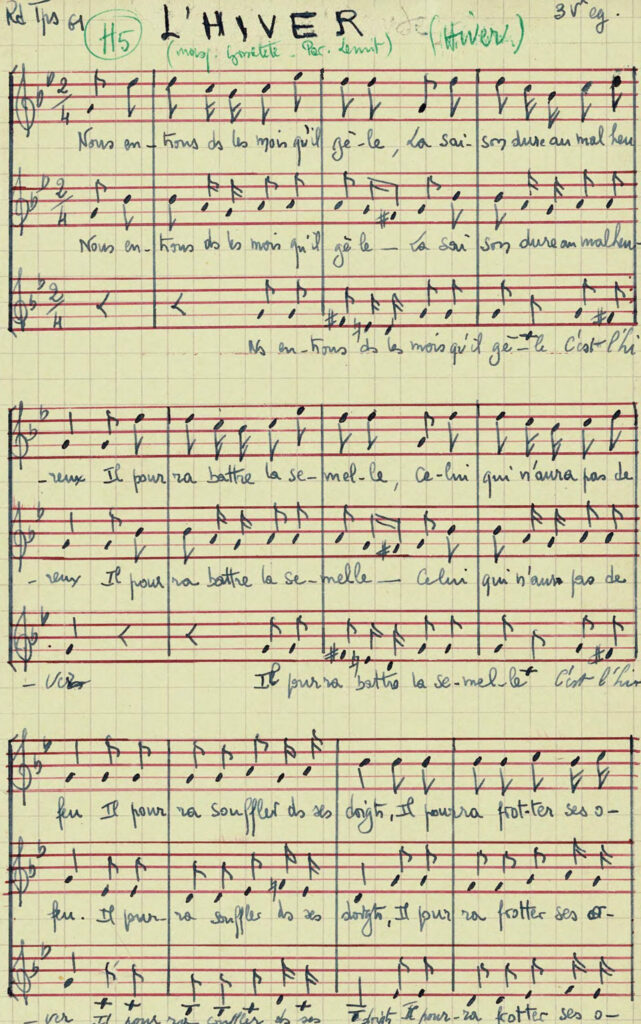 Rd Tps 61
H5
L'HIVER
3 V eg.
(Hiver)
2/4
Nous en-trons ds les mois qu'il gè-le, La sai-son dure au mal heu
2/4
Nous en-trons ds les mois qu'il gè-le — La sai son dure au mal heu-
2/4
Ns en-trons ds les mois qu'il gè-le C'est l'hi
-reux Il pour ra battre la se-mel-le, Ce-lui qui n'aura pas de
-reux Il pour ra battre la se-melle — Celui qui n'aura pas de
-ver Il pourra battre la se-mel-le C'est l'hi
feu Il pour ra souffler ds ses doigts, Il pourra frot-ter ses o-
feu. Il pour-ra souffler ds ses doigts, Il pour ra frotter ses o-
-ver Il pour ra souffler ds ses doigts Il pour-ra frotter ses o-